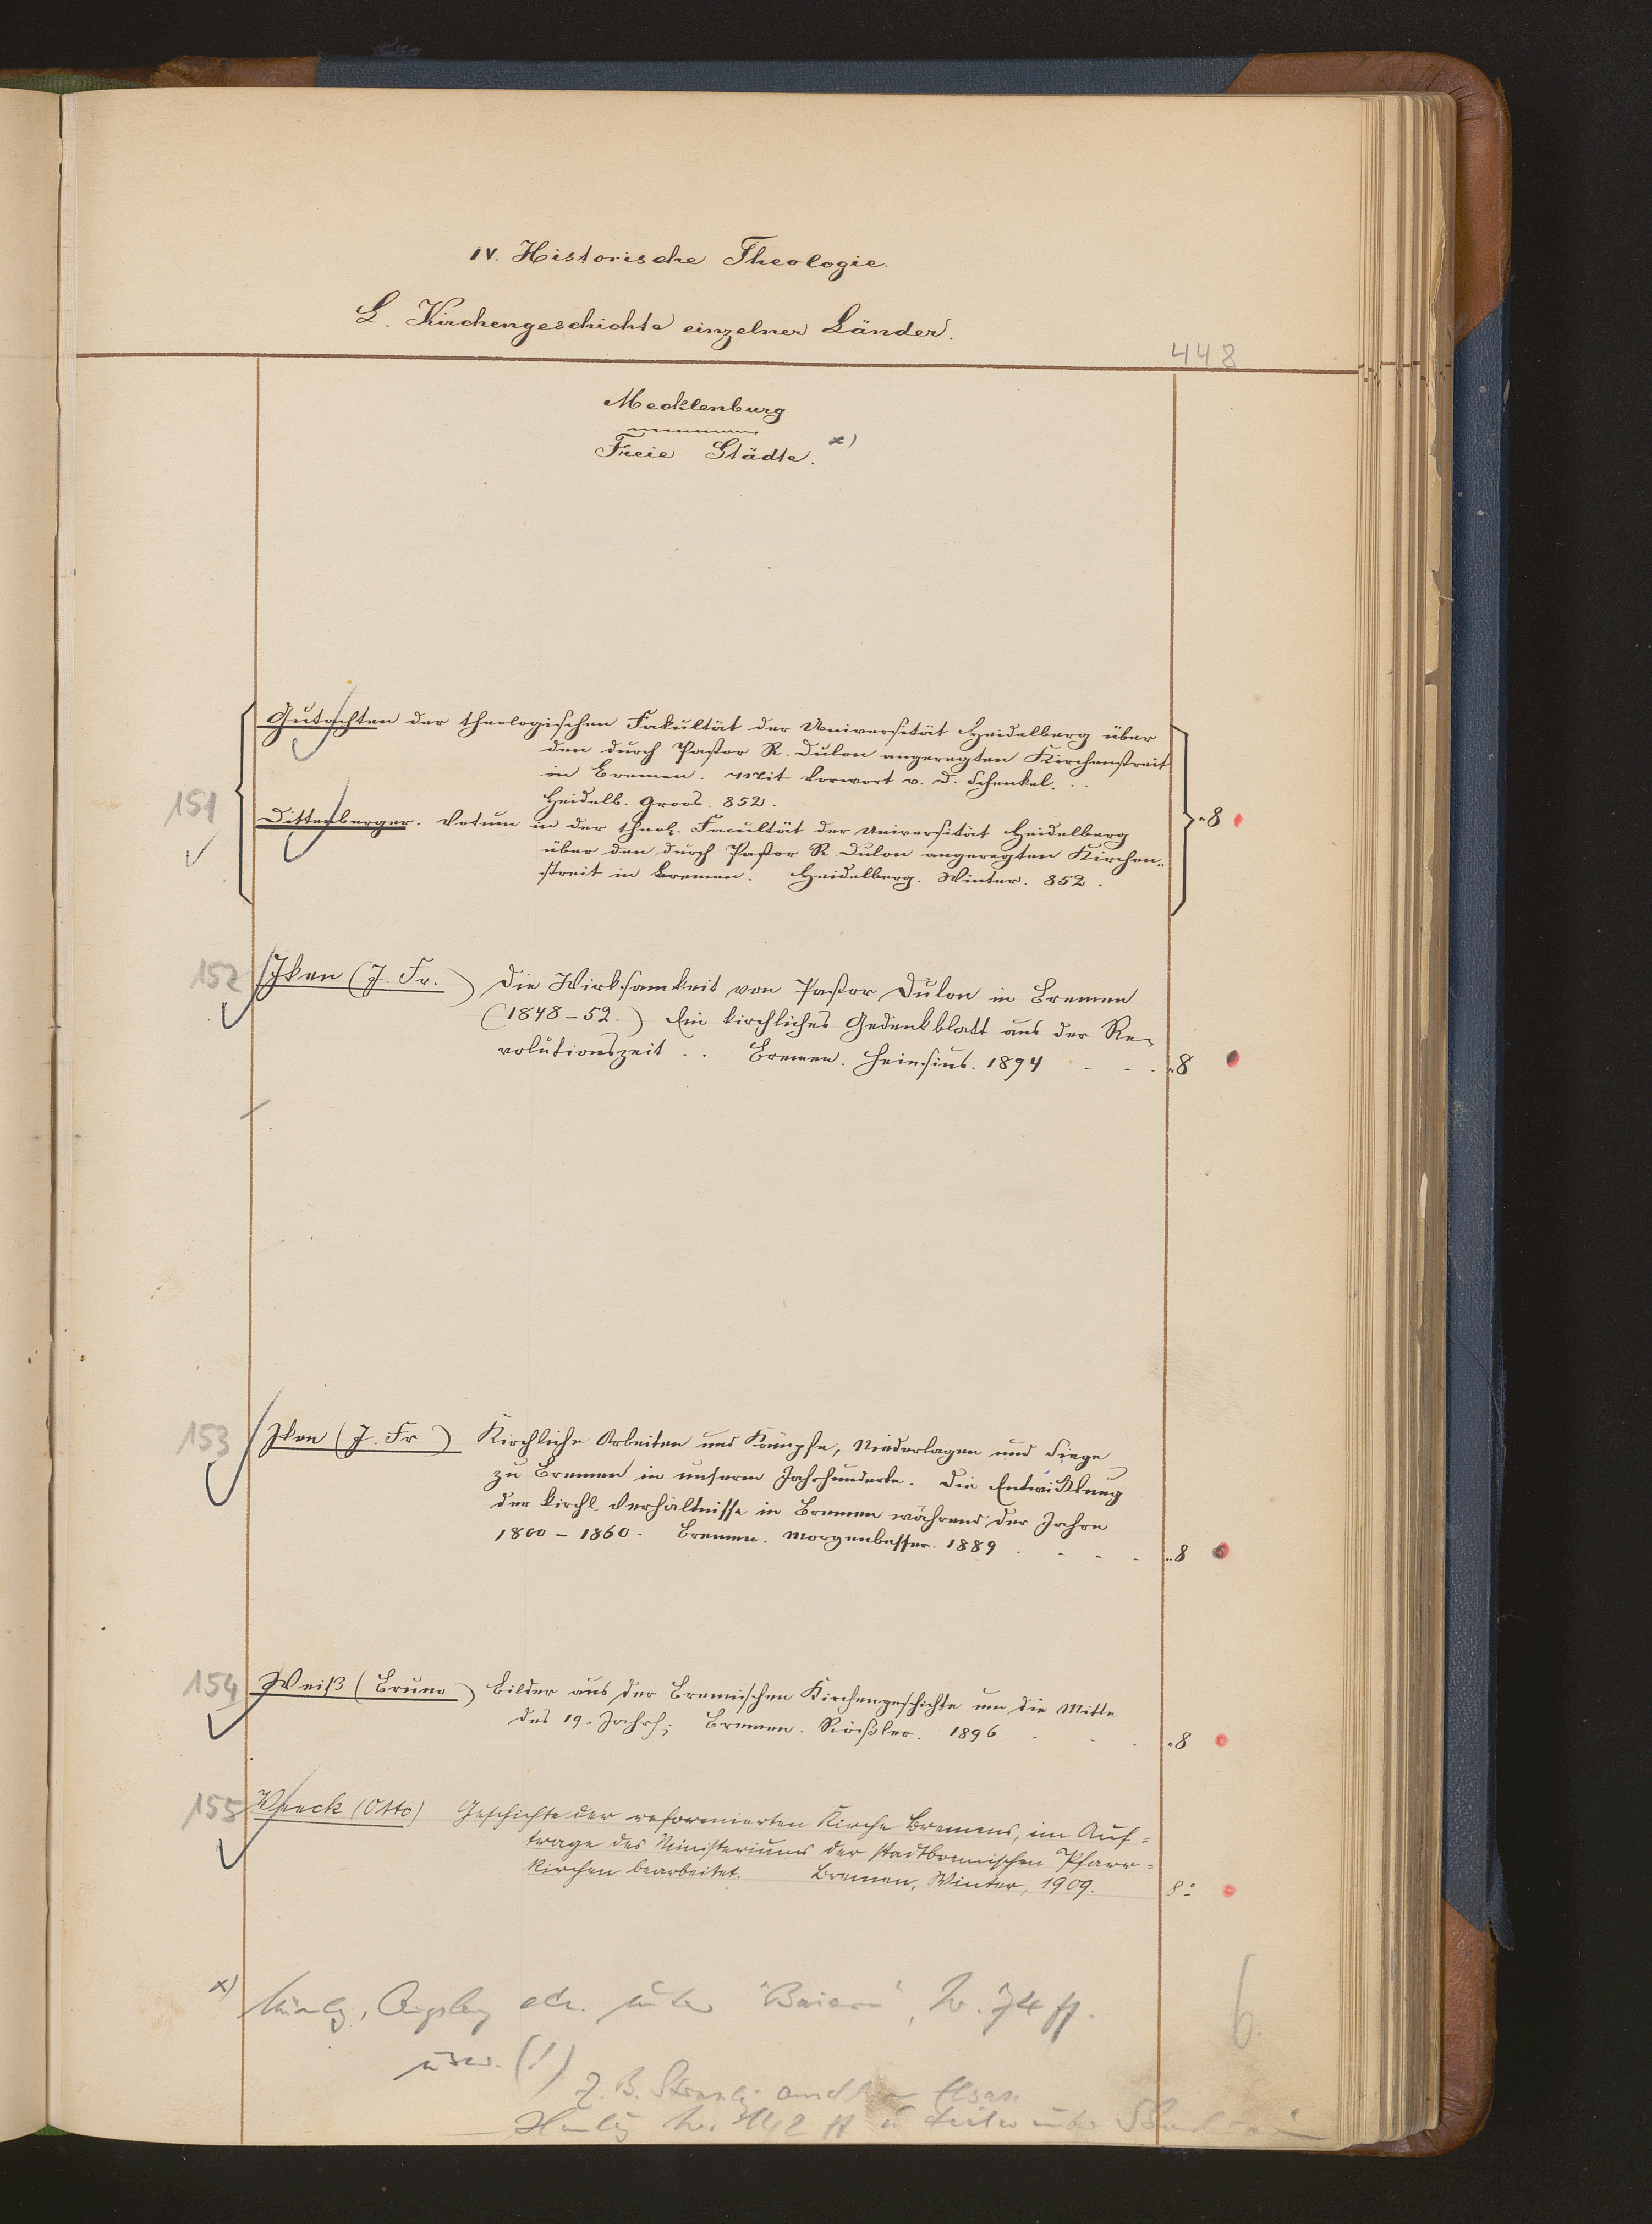 IV. Historische Theologie.
L. Kirchengeschichte einzelner Länder.
448
Mecklenburg
Freie Städte. x)
151
Gutachten der theologischen Fakultät der Universität Heidelberg über
den durch Pastor R. Dulon angeregten Kirchenstreit
in Bremen. Mit Vorwort v. D. Schenkel. . .
Heidelb. Groos. 852.
Dittenberger. Votum in der theol. Facultät der Universität Heidelberg
über den durch Pastor R. Dulon angeregten Kirchen-
streit in Bremen. Heidelberg. Winter. 852.
"8
152 Iken (J. Fr.) Die Wirksamkeit von Pastor Dulon in Bremen
(1848-52.) Ein kirchliches Gedenkblatt aus der Re-
volutionszeit . . Bremen. Heinsius. 1894 . . . "8
153 Iken (J. Fr) Kirchliche Arbeiten und Kämpfe, Niederlagen und Siege
zu Bremen in unserm Jahrhunderte. Die Entwicklung
der kirchl Verhältnisse in Bremen während der Jahre
1800-1860. Bremen. Morgenbesser. 1889 . . . . "8
154 Weiß (Bruno) Bilder aus der Bremischen Kirchengeschichte um die Mitte
des 19. Jahrh; Bremen. Rößler. 1896 . . . "8
155 Veeck (Otto) Geschichte der reformierten Kirche Bremens, im Auf=
trage des Ministeriums der stadtbremischen Pfarr=
kirchen bearbeitet. Bremen, Winter, 1909. 8°
x) Augsbg etc. unter "Baiern", Nr. 74 ff.
usw. (!)
z. B. Strassbg. Elsas.
Nr. 142 ff u
6